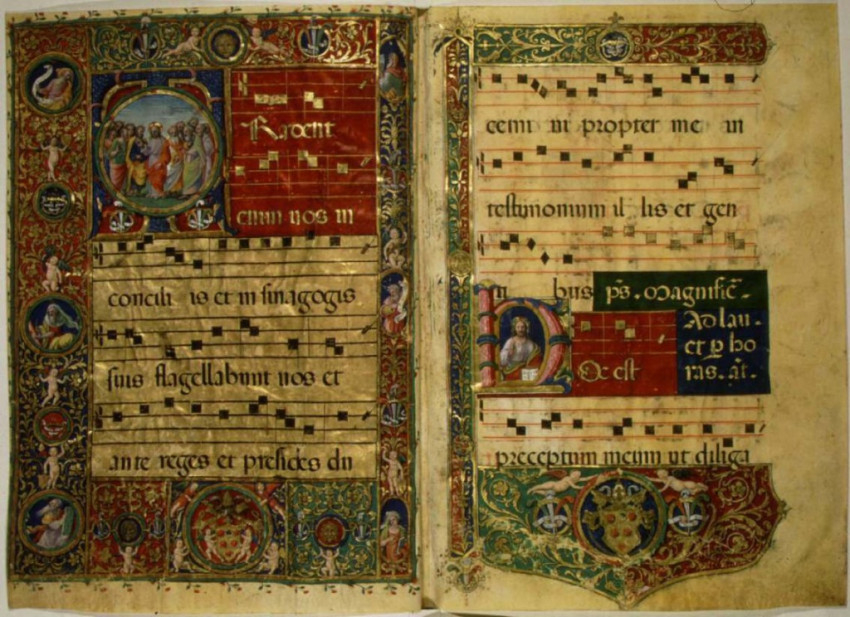 Radent
enim uos in
concili is et in sinagogis
suis flagellabunt uos et
ante reges et presides du
cemi ni propter me in
testimonium il lis et gen
bus ps. Magnific.
Ad lau.
et p ho
Oc est
ras. at.
preceptum meum ut diliga